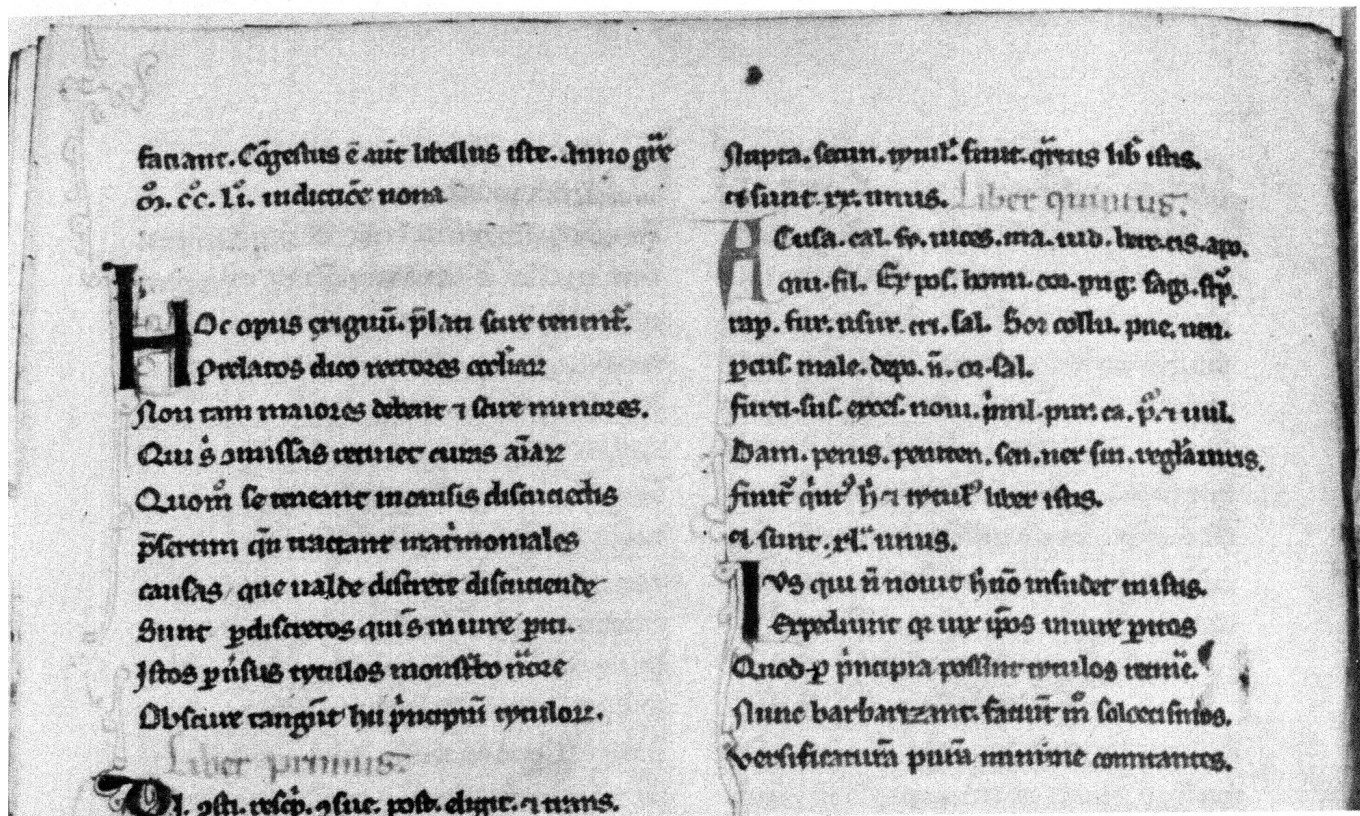 faciant. Cōgestus ē aūt libellus iste. Anno grē
m̊. c̊c̊. l̊i̊. indictiōe nona
Hoc opus exiguū. p̄lati scire tenent᷑.
Prelatos dico rectores eccl̄iar
Non tam maiores debent ⁊ scire minores.
Qui s̄ omissas retinet curas aīar
Quom̊ se teneant in causis discuciēdis
p̄sertim qn̄ tractant matͥmoniales
causas que ualde discrete discuciende
Sunt ꝑ discretos qui s̄ in iure ꝑiti.
Istos tytulos
Obscure tangūt hii pͥncipiū tytulor.
Liber primus.
⁊ trans.
Nupta. secun. tytul᷑. finit. q̄rtus lib̄ istis.
et sunt. xx. unus. Liber quintus.
Acusa. cal. sy. iud.
qui. fil. Ex pos. homi. tor. pug. sagi.
rap. fur. usur. cri. fal. Sor collu. pue. uen.
ꝑcus. male. depo. n̄. cor. sal.
furti. sus. exces. noui. pͥuil. pur.
Dam. penis. peniten. sen. uer sin. regl̄amus.
finit᷑ qͥnt᷑ liber istis.
et sunt. xl. unus.
Ius qui n̄ nouit insudet in istis.
Expediunt iure ꝑitos
Quod ꝑ pͥncipia possint tytulos
Nunc barbarizant. faciūt m̊ soloecismos.
Versificaturā purā minime comitantes.